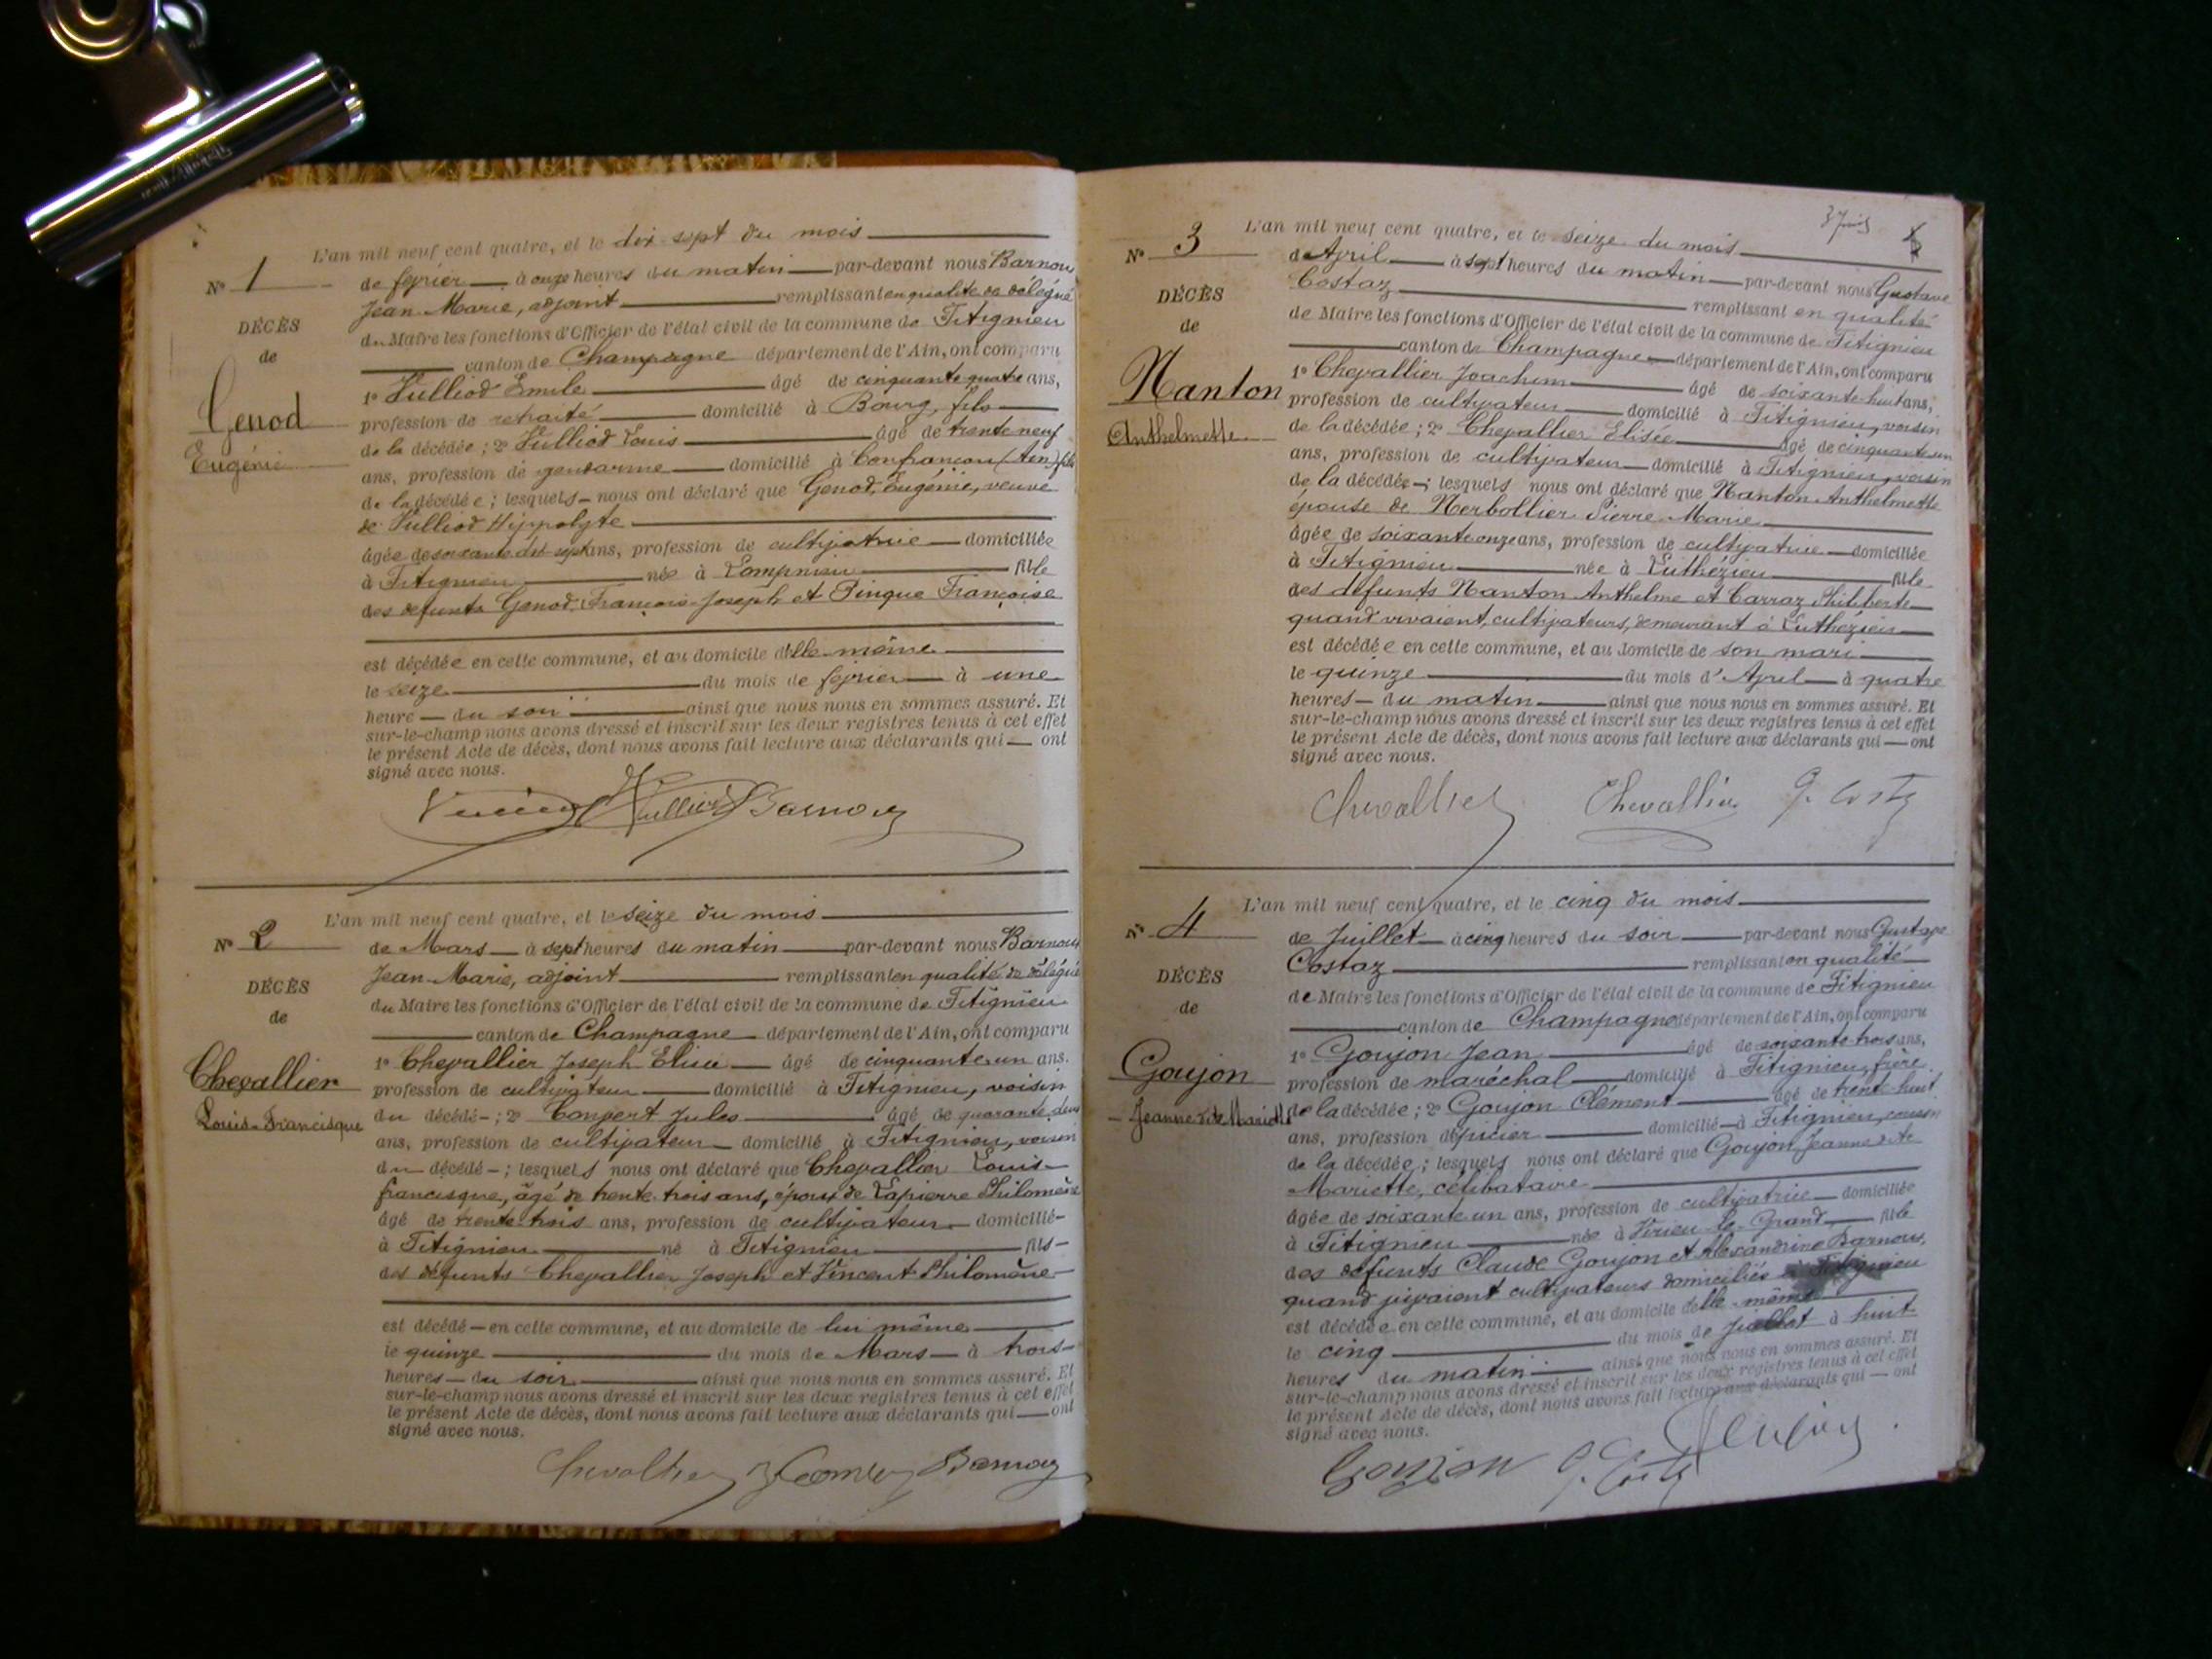 L'an mil neuf cent quatre, et le dix sept du mois
N° 1
de février à onze heures du matin par-devant nous Barnoux
Jean-Marie, adjoint remplissant en qualité de délégué
DÉCÈS
du Maire les fonctions d'Officier de l'état civil de la commune de Fitignieu
de
canton de Champagne département de l'Ain, ont comparu
Genod
Eugénie
1° Vulliod Emile âgé de cinquante quatre ans,
profession de retraité domicilié à Bourg, fils
de la décédée; 2° Vulliod Louis âgé de trente neuf
ans, profession de gendarme domicilié à Confrançon (Ain) fils
de la décédée; lesquels nous ont déclaré que Genod, Eugénie, veuve
de Vulliod Hippolyte
âgée de soixante dix sept ans, profession de cultivatrice domiciliée
à Fitignieu née à Lompnieu fille
des défunts Genod, François-Joseph et Pinque Françoise
est décédée en cette commune, et au domicile d'elle-même
le seize du mois de février à une
heure du soir ainsi que nous nous en sommes assuré. Et
sur-le-champ nous avons dressé et inscrit sur les deux registres tenus à cet effet
le présent Acte de décès, dont nous avons fait lecture aux déclarants qui ont
signé avec nous.
Vulliod Barnoux
L'an mil neuf cent quatre, et le seize du mois
N° 2
de Mars à sept heures du matin par-devant nous Barnoux
Jean-Marie, adjoint remplissant en qualité de délégué
DÉCÈS
du Maire les fonctions d'Officier de l'état civil de la commune de Fitignieu
de
canton de Champagne département de l'Ain, ont comparu
Chevallier
Louis-Francisque
1° Chevallier Joseph Elisée âgé de cinquante un ans.
profession de cultivateur domicilié à Fitignieu, voisin
du décédé; 2° Convert Jules âgé de quarante deux
ans, profession de cultivateur domicilié à Fitignieu, voisin
du décédé; lesquels nous ont déclaré que Chevallier Louis-
francisque, âgé de trente trois ans, époux de Lapierre Philomène
âgé de trente-trois ans, profession de cultivateur domicilié
à Fitignieu né à Fitignieu fils
des défunts Chevallier Joseph et Vincent Philomène
est décédé en cette commune, et au domicile de lui même
le quinze du mois de Mars à trois
heures du soir ainsi que nous nous en sommes assuré. Et
sur-le-champ nous avons dressé et inscrit sur les deux registres tenus à cet effet
le présent Acte de décès, dont nous avons fait lecture aux déclarants qui ont
signé avec nous.
Chevallier Barnoux
L'an mil neuf cent quatre, et le seize du mois
N° 3
d'Avril à sept heures du matin par-devant nous Gustave
Costaz remplissant en qualité
DÉCÈS
de Maire les fonctions d'Officier de l'état civil de la commune de Fitignieu
de
canton de Champagne département de l'Ain, ont comparu
Nanton
Anthelmette
1° Chevallier Joachim âgé de soixante-huit ans,
profession de cultivateur domicilié à Fitignieu, voisin
de la décédée; 2° Chevallier Elisée âgé de cinquante un
ans, profession de cultivateur domicilié à Fitignieu, voisin
de la décédée; lesquels nous ont déclaré que Nanton Anthelmette
épouse de Nerbollier Pierre-Marie
âgée de soixante onze ans, profession de cultivatrice domiciliée
à Fitignieu née à Luthézieu fille
des défunts Nanton Anthelme et Carraz Philiberte
quand vivaient, cultivateurs, demeurant à Luthézieu
est décédée en cette commune, et au domicile de son mari
le quinze du mois d'Avril à quatre
heures du matin ainsi que nous nous en sommes assuré. Et
sur-le-champ nous avons dressé et inscrit sur les deux registres tenus à cet effet
le présent Acte de décès, dont nous avons fait lecture aux déclarants qui ont
signé avec nous.
Chevallier Chevallier G. Costaz
L'an mil neuf cent quatre, et le cinq du mois
N° 4
de Juillet à cinq heures du soir par-devant nous Gustave
Costaz remplissant en qualité
DÉCÈS
de Maire les fonctions d'Officier de l'état civil de la commune de Fitignieu
de
canton de Champagne département de l'Ain, ont comparu
Goujon
Jeanne dite Mariette
1° Goujon Jean âgé de soixante-trois ans,
profession de maréchal domicilié à Fitignieu, frère
de la décédée; 2° Goujon Clément âgé de trente-huit
ans, profession d'épicier domicilié à Fitignieu, cousin
de la décédée; lesquels nous ont déclaré que Goujon Jeanne dite
Mariette, célibataire
âgée de soixante un ans, profession de cultivatrice domiciliée
à Fitignieu née à Virieu-le-Grand fille
des défunts Claude Goujon et Alexandrine Barnoux,
quand vivaient cultivateurs domiciliés à Fitignieu
est décédée en cette commune, et au domicile d'elle même
le cinq du mois de Juillet à huit
heures du matin ainsi que nous nous en sommes assuré. Et
sur-le-champ nous avons dressé et inscrit sur les deux registres tenus à cet effet
le présent Acte de décès, dont nous avons fait lecture aux déclarants qui ont
signé avec nous.
Goujon G. Costaz Goujon